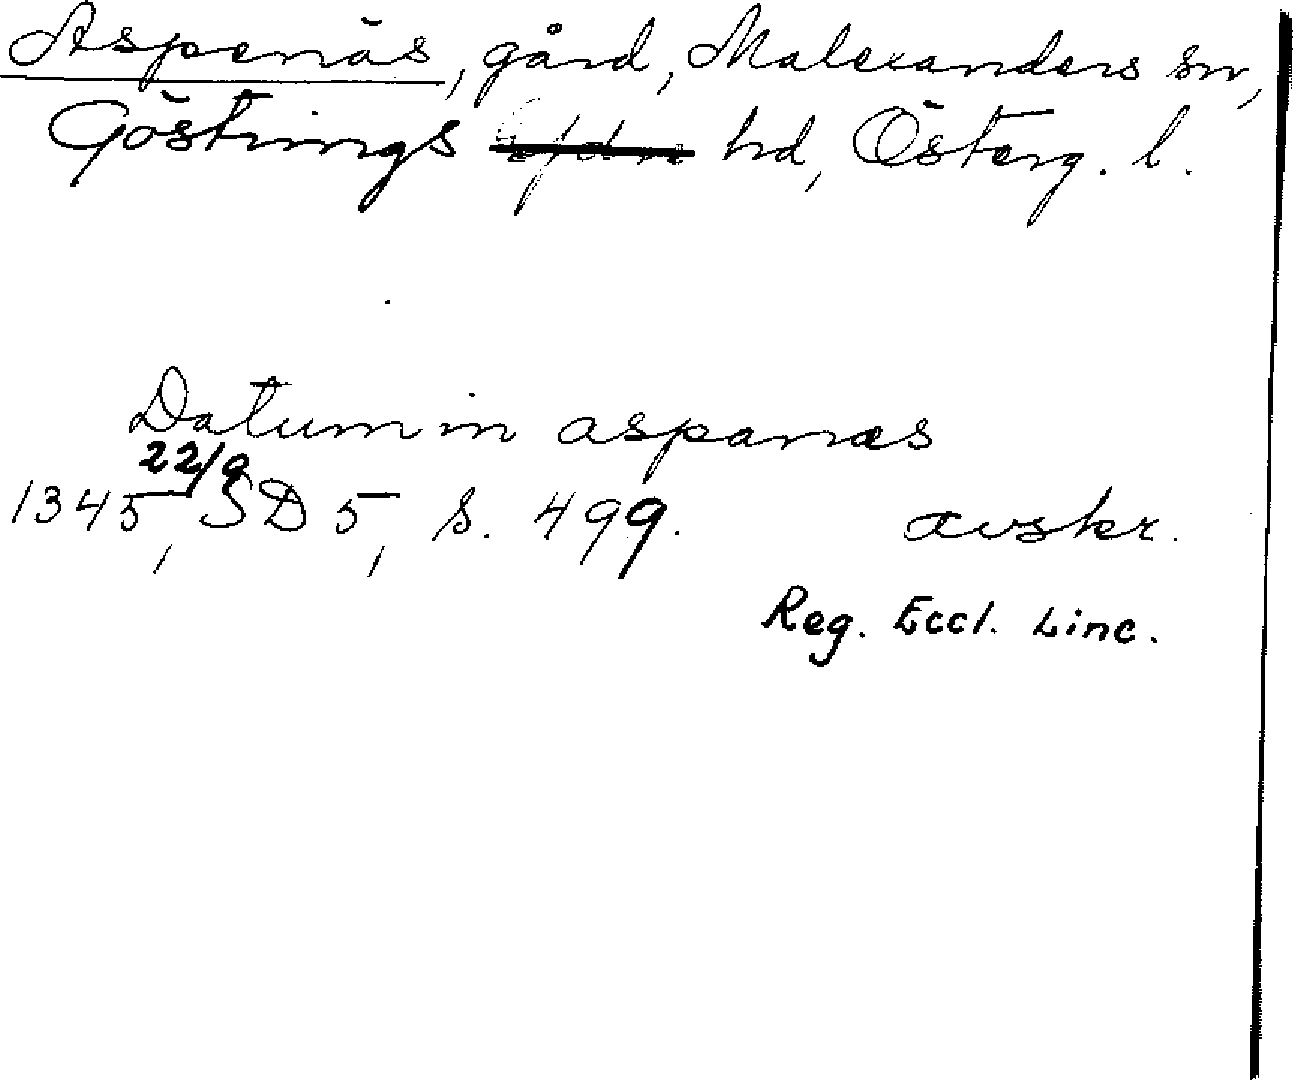 Aspenäs, gård, Malexanders sn,
Göstrings hd, Österg. l.
Datum in aspanæs
22/9
1345, SD 5, s. 499. avskr.
Reg. Eccl. Linc.